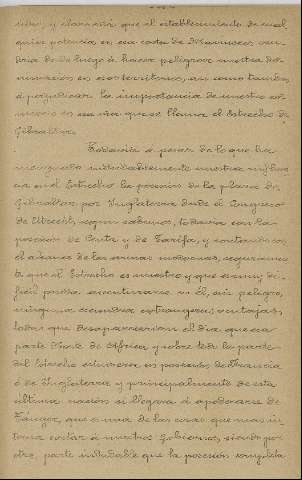 y claro está que el establecimiento de cual
quier potencia en esa costa de Marruecos, ven
dría desde luego á hacer peligrosa nuestra do
minación en ese territorio, así como también
á perjudicar la importancia de nuestro co
mercio en esa vía que se llama el Estrecho de
Gibraltar.
Todavía á pesar de lo que ha
menguado indudablemente nuestra influen
cia en el Estrecho la posesión de la plaza de
Gibraltar por Inglaterra desde el Congreso
de Utrecht, según sabemos, todavía con la
posesión de Ceuta y de Tarifa, y contando con
el alcance de las armas modernas,
que el Estrecho es nuestro y que es muy di
fícil pueda aventurarse en él, sin peligro,
ninguna escuadra extranjera; ventajas,
todas que desaparecerían el día que esa
parte Norte de Africa y sobre todo la parte
del Estrecho estuviera en posesión de Francia
ó de Inglaterra y principalmente de esta
última nación si llegara á apoderarse de
Tánger, que es una de las cosas que más in
tenta evitar á nuestros Gobiernos, siendo por
otra parte indudable que la posesión completa